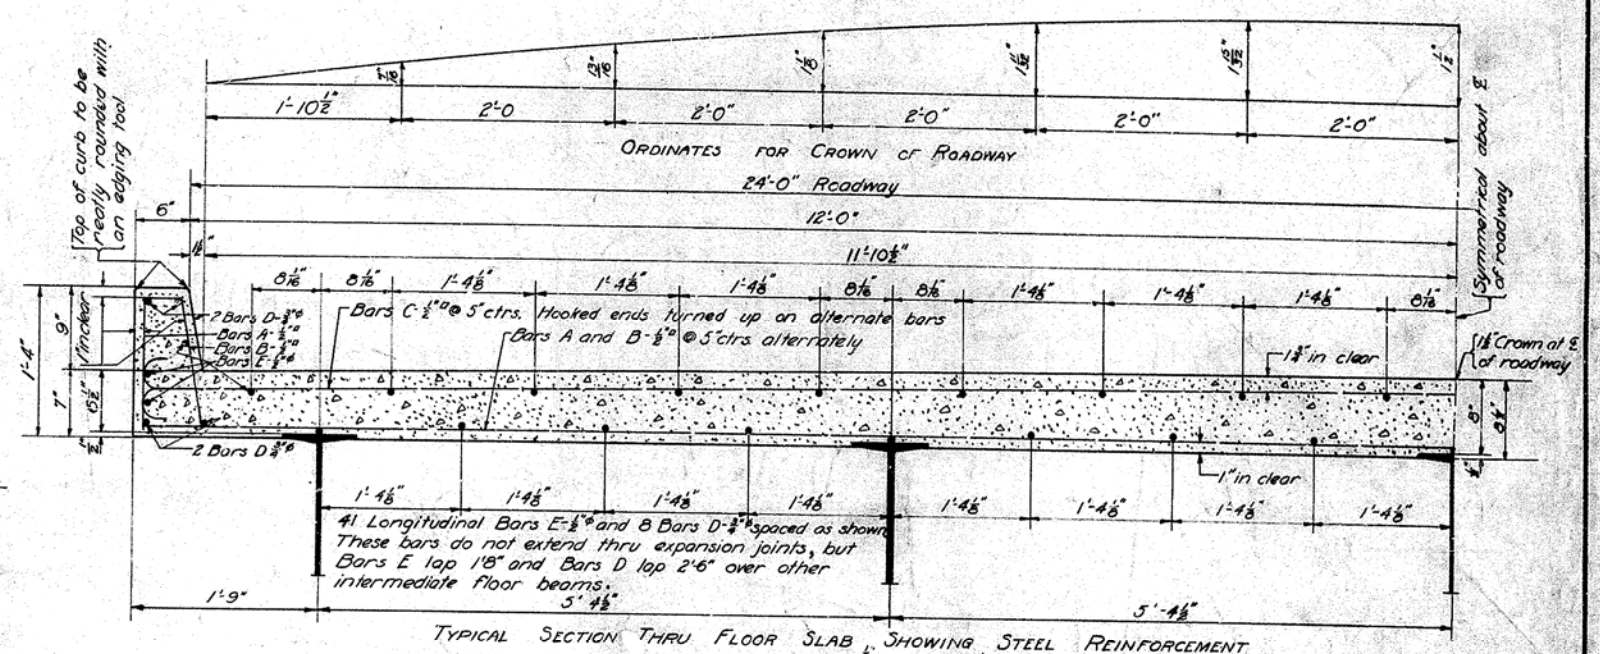 Top of curb to be
neatly rounded with
an edging tool
7/16
13/16
1 1/8"
1 11/32"
1 15/32"
1 1/2"
1'-10 1/2"
2'-0
2'-0"
2'-0"
2'-0"
2'-0"
ORDINATES FOR CROWN OF ROADWAY
24'-0" Roadway
6"
12'-0"
1 1/2"
11'-10 1/2"
Symmetrical about ℄
of roadway
8 1/16"
8 1/16"
1'-4 1/8"
1'-4 1/8"
1'-4 1/8"
8 1/16"
8 1/16"
1'-4 1/8"
1'-4 1/8"
1'-4 1/8"
8 1/16"
2 Bars D-3/4"φ
Bars A-1/2"□
Bars B-1/2"□
Bars E-1/2"φ
Bars C-1/2"□ @ 5" ctrs. Hooked ends turned up on alternate bars
Bars A and B-1/2"□ @ 5" ctrs. alternately
1 3/4" in clear
1 1/2" Crown at ℄
of roadway
1'-4"
9"
7"
1" in clear
5 1/2"
1/2"
8"
8 1/2"
2 Bars D 3/4"φ
1" in clear
1'-4 1/8"
1'-4 1/8"
1'-4 1/8"
1'-4 1/8"
1'-4 1/8"
1'-4 1/8"
1'-4 1/8"
1'-4 1/8"
41 Longitudinal Bars E-1/2"φ and 8 Bars D-3/4"φ spaced as shown
These bars do not extend thru expansion joints, but
Bars E lap 1'8" and Bars D lap 2'-6" over other
intermediate floor beams.
1'-9"
5'-4 1/2"
5'-4 1/2"
TYPICAL SECTION THRU FLOOR SLAB, SHOWING STEEL REINFORCEMENT